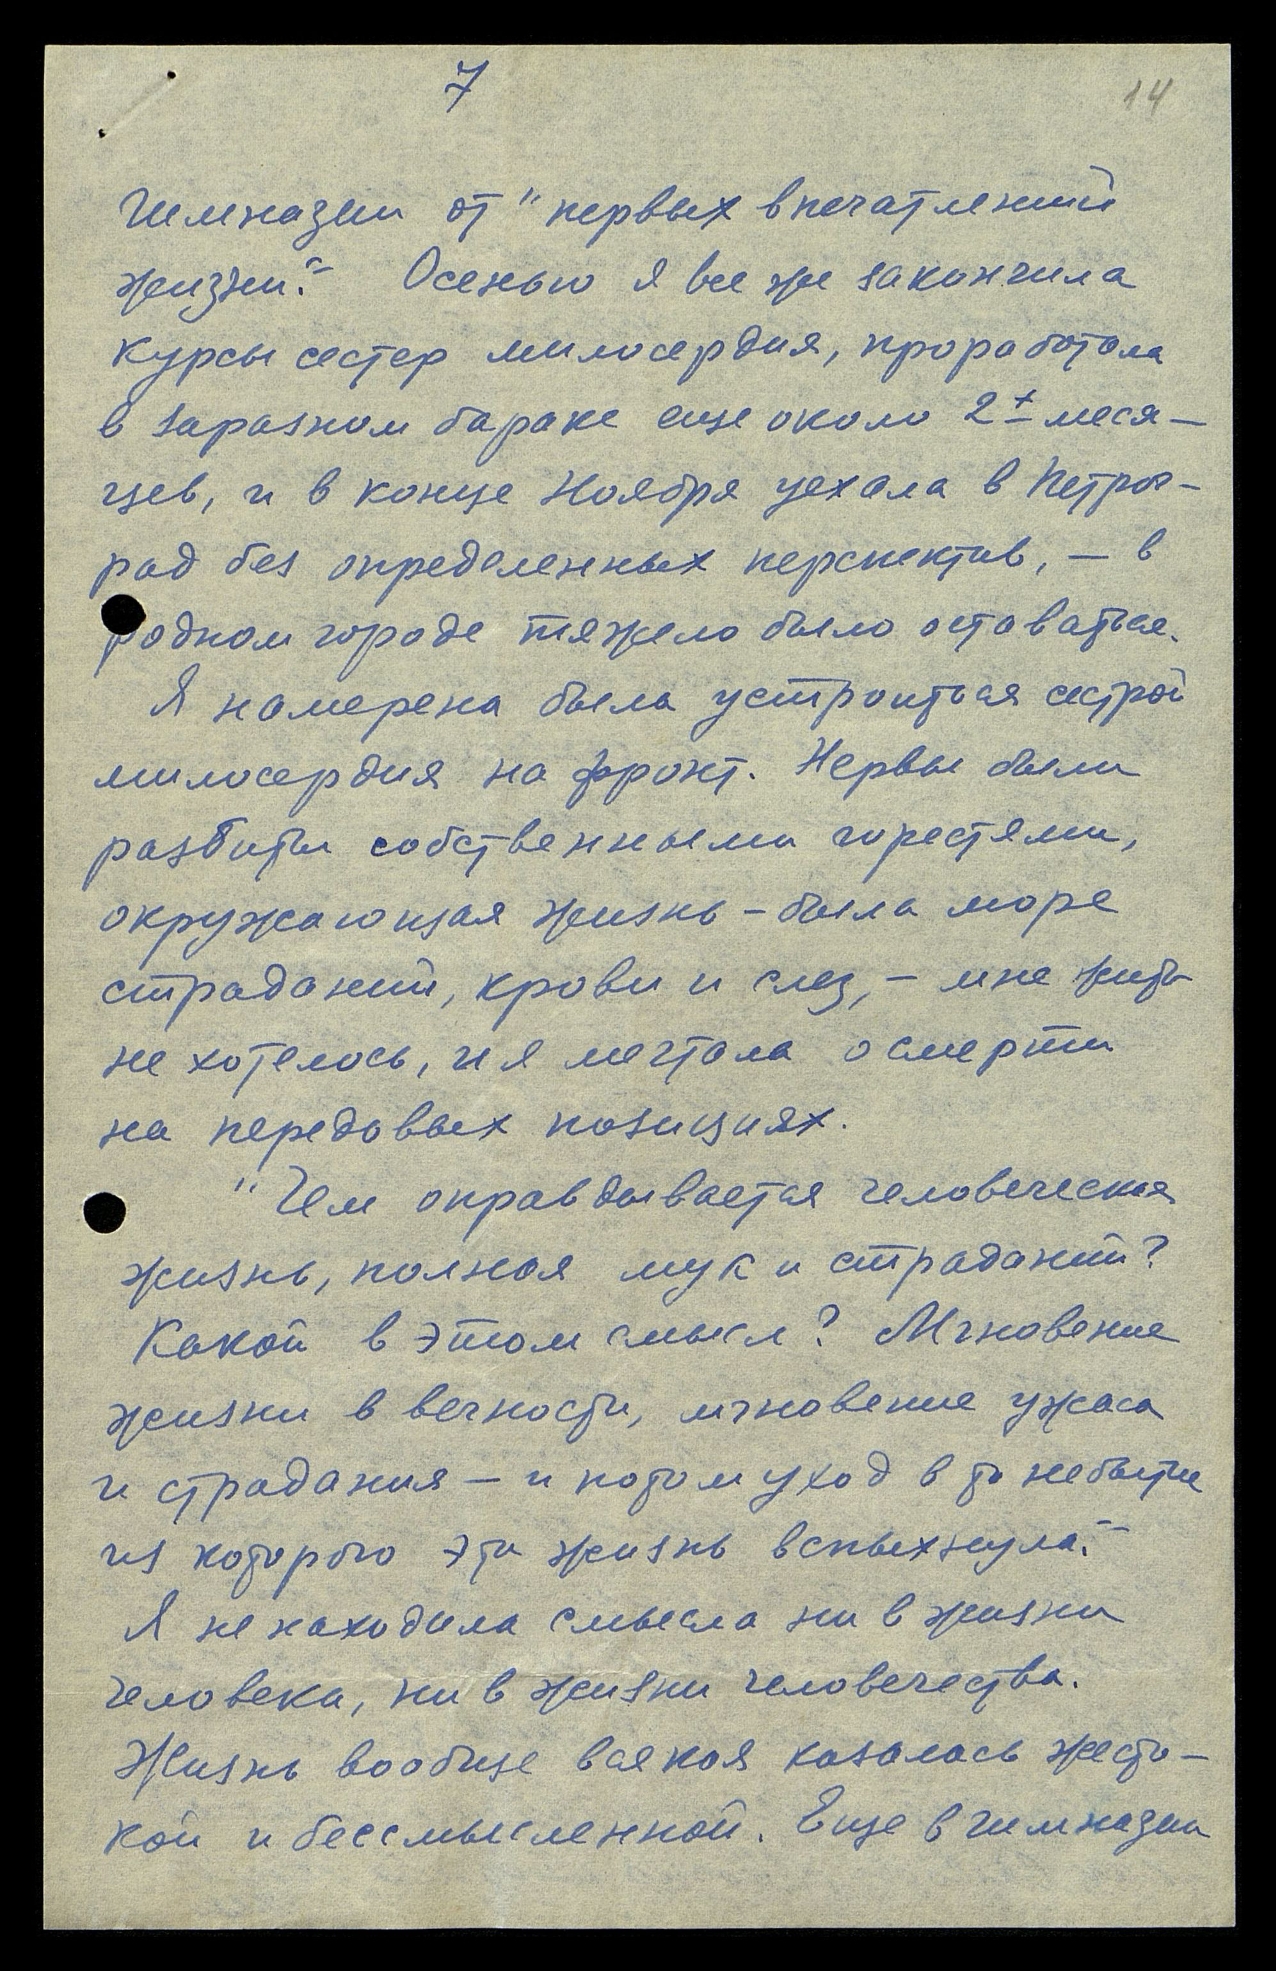 7
14
гимназии от "первых впечатлений
жизни." Осенью я все же закончила
курсы сестер милосердия, проработала
в заразном бараке еще около 2х меся-
цев, и в конце Ноября уехала в Петрог-
рад без определенных перспектив, — в
родном городе тяжело было оставаться.
Я намерена была устроиться сестрой
милосердия на фронт. Нервы были
разбиты собственными горестями,
окружающая жизнь - была море
страданий, крови и слез, - мне жить
не хотелось, и я мечтала о смерти
на передовых позициях.
"Чем оправдывается человеческая
жизнь, полная мук и страданий?
Какой в этом смысл? Мгновение
жизни в вечности, мгновение ужаса
и страдания — и потом уход в то небытие
из которого эта жизнь вспыхнула."
Я не находила смысла ни в жизни
человека, ни в жизни человечества.
Жизнь вообще всякая казалась жесто-
кой и бессмысленной. Еще в гимназии